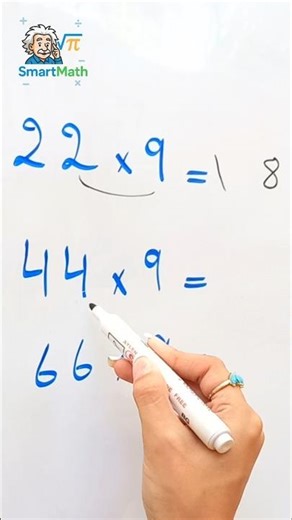 √π
SmartMath
22 x 9 = 1 8
44 x 9 =
66